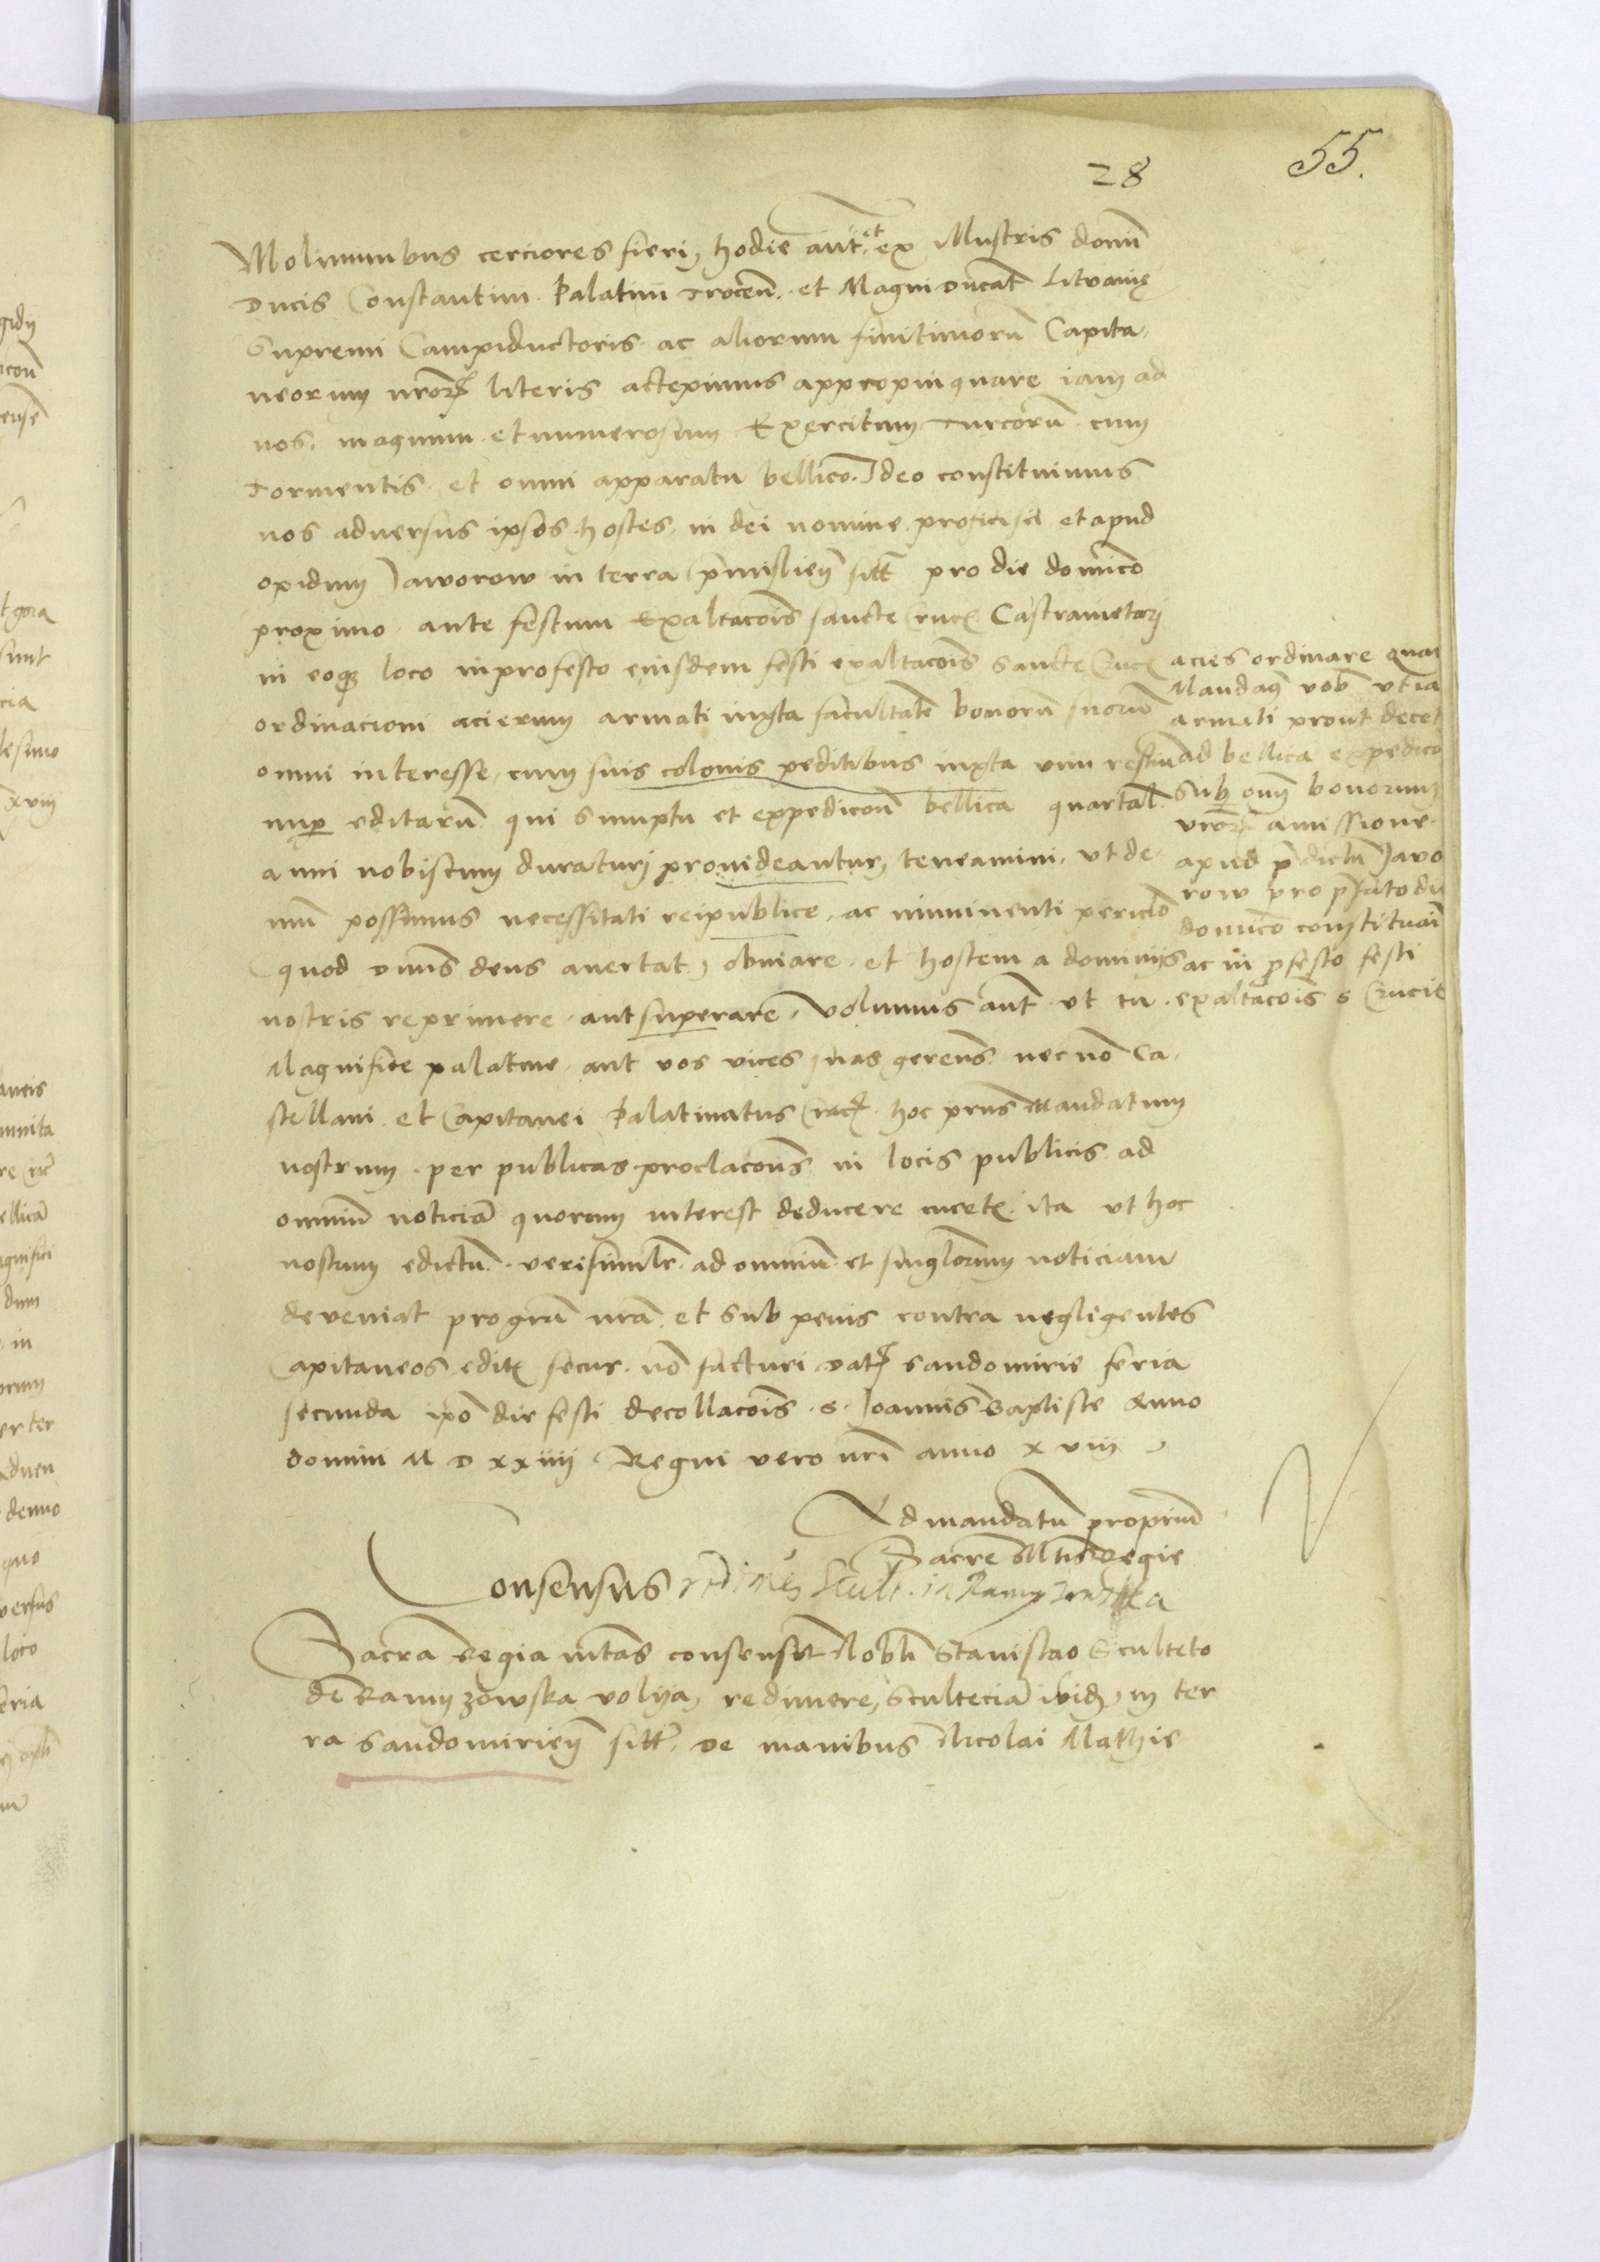 28
55.
Moliminibus cerciores fieri, hodie aut. et ex Illustris domi
Ducis Constantini Palatini Trocen. et Magni Ducat Lituanię
Supremi Campiductoris ac aliorum finitimorū Capita
neorum nror literis accepimus appropinquare iam ad
nos, magnum et numerosum Exercitum Turcorū cum
Tormentis et omni apparatu bellico. Ideo constituimus
nos adversus ipsos hostes in dei nomine proficisci et apud
opidum Jaworow in terra Premislien sitt pro die dominico
proximo ante festum Exaltacois sancte Cruc Castrametari
in eoq loco in profesto eiusdem festi exaltacois sancte Cruc
ordinacioni acierum armati iuxta facultate bonorū suorū
omni interesse, cum suis colonis peditibus iuxta vim
nuper editarū qui sumptu et expedicon bellica quartal
anni nobiscum duraturi provideantur, teneamini, ut de
mū possimus necessitati reipublice, ac imminenti periclo
(quod dnus deus avertat) obviare et hostem a dominiis
nostris reprimere aut superare. Volumus aut ut tu
Magnifice palatine aut vos vices suas gerens necnō Ca
stellani et Capitanei Palatinatus Crac. hoc prns Mandatum
nostrum per publicas proclacons in locis publicis ad
omniū noticiā quorum interest deducere curetis ita ut hoc
nostrum edictū verisimilr ad omniū et singlorum noticiam
deveniat pro gra nra et sub penis contra negligentes
Capitaneos edit secus nō facturi Dat Sandomirie feria
secunda ipo die festi decollacois s. Joannis Baptiste Anno
domini M D xxiiii Regni vero nri anno xviii
acies ordinare
Mandam vob ut
armati prout decet
ad bellica expedico
sub omn bonorum
vror amissione
apud pdictū Javo
row pro pfato die
domico
ac in pfesto festi
exaltacois s Crucis
Ad mandatū propriū
Sacre Mtis Regie
Consensus
Sacra Regia mtas consensit Nobli Stanislao Sculteto
de Ramyzowska volya, redimere, Sculteciā ibid, in ter
ra Sandomirien sitt. de manibus Nicolai Mathie